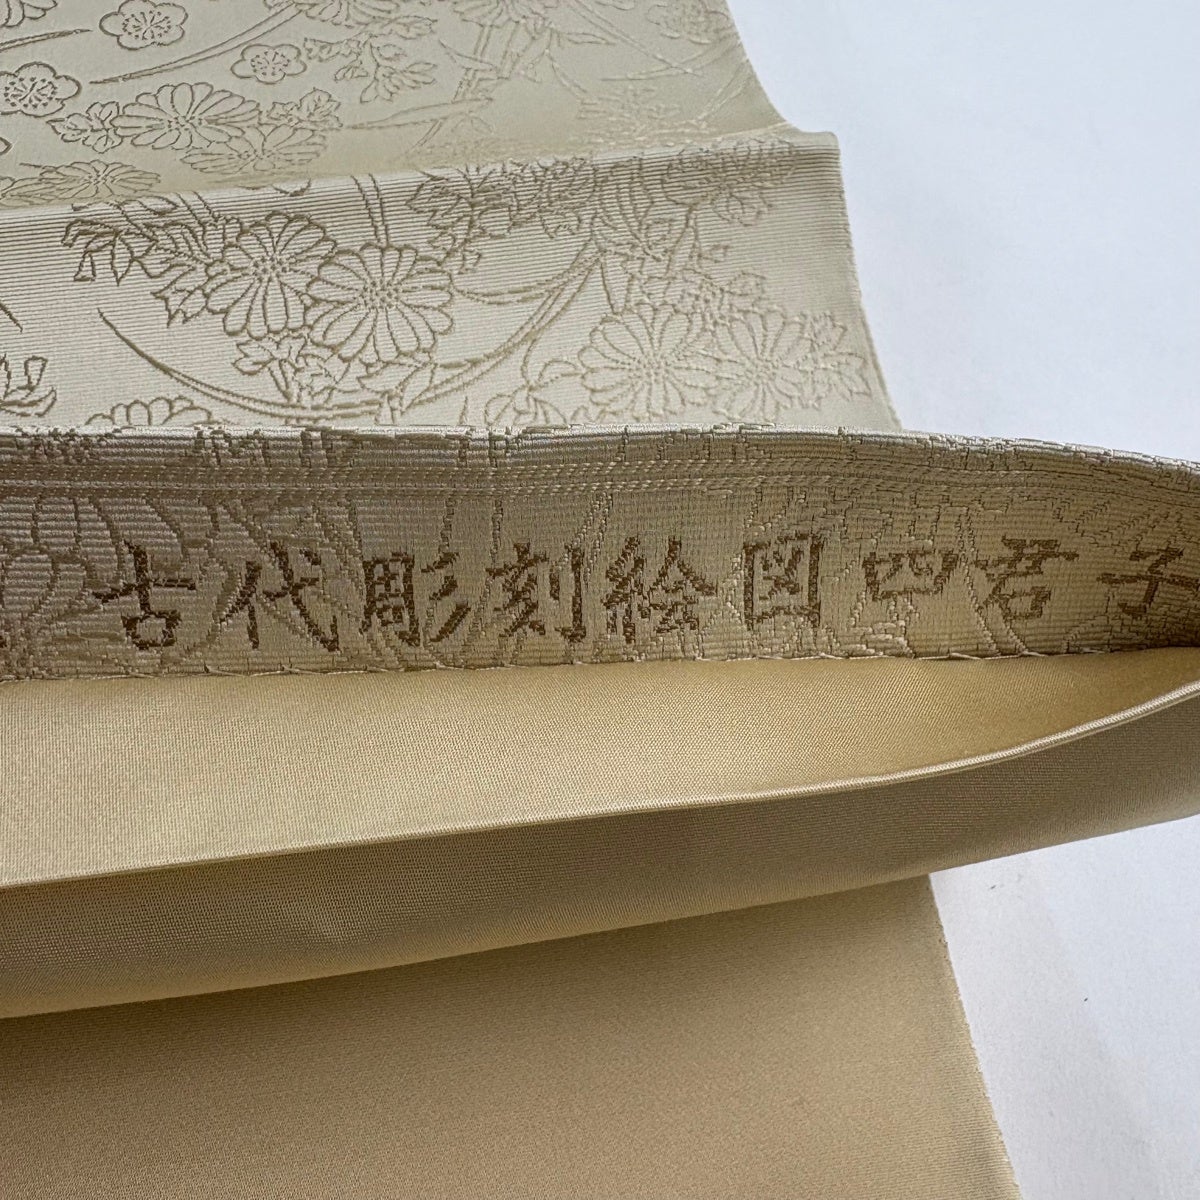 古代彫刻絵図四君子